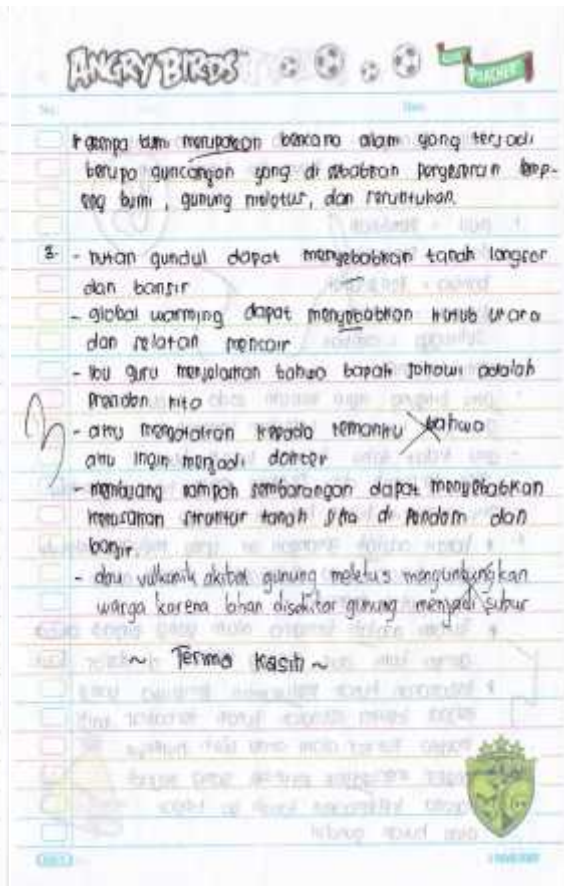 ANGRY BIRDS
gempa bumi merupakan bencana alam yang terjadi
berupa guncangan yang di sebabkan pergeseran lemp-
eng bumi, gunung meletus, dan reruntuhan.
3. - hutan gundul dapat menyebabkan tanah longsor
dan banjir
- global warming dapat menyebabkan kutub utara
dan selatan mencair
- Ibu guru menjelaskan bahwa bapak Jokowi adalah
kita
- aku mengatakan kepada temanku bahwa
aku ingin menjadi dokter
- membuang sampah sembarangan dapat menyebabkan
kerusakan struktur tanah jika di pendam dan
banjir.
- abu vulkanik akibat gunung meletus menguntungkan
warga karena lahan disekitar gunung menjadi subur
~ Terima Kasih ~